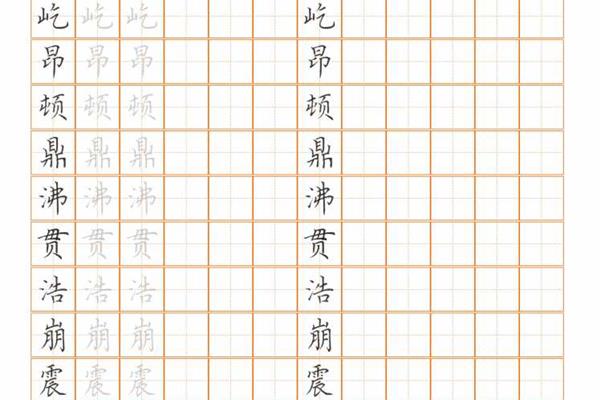 屹屹屹屹
昂昂昂昂
顿顿顿顿
鼎鼎鼎鼎
沸沸沸沸
贯贯贯贯
浩浩浩浩
崩崩崩崩
震震震震